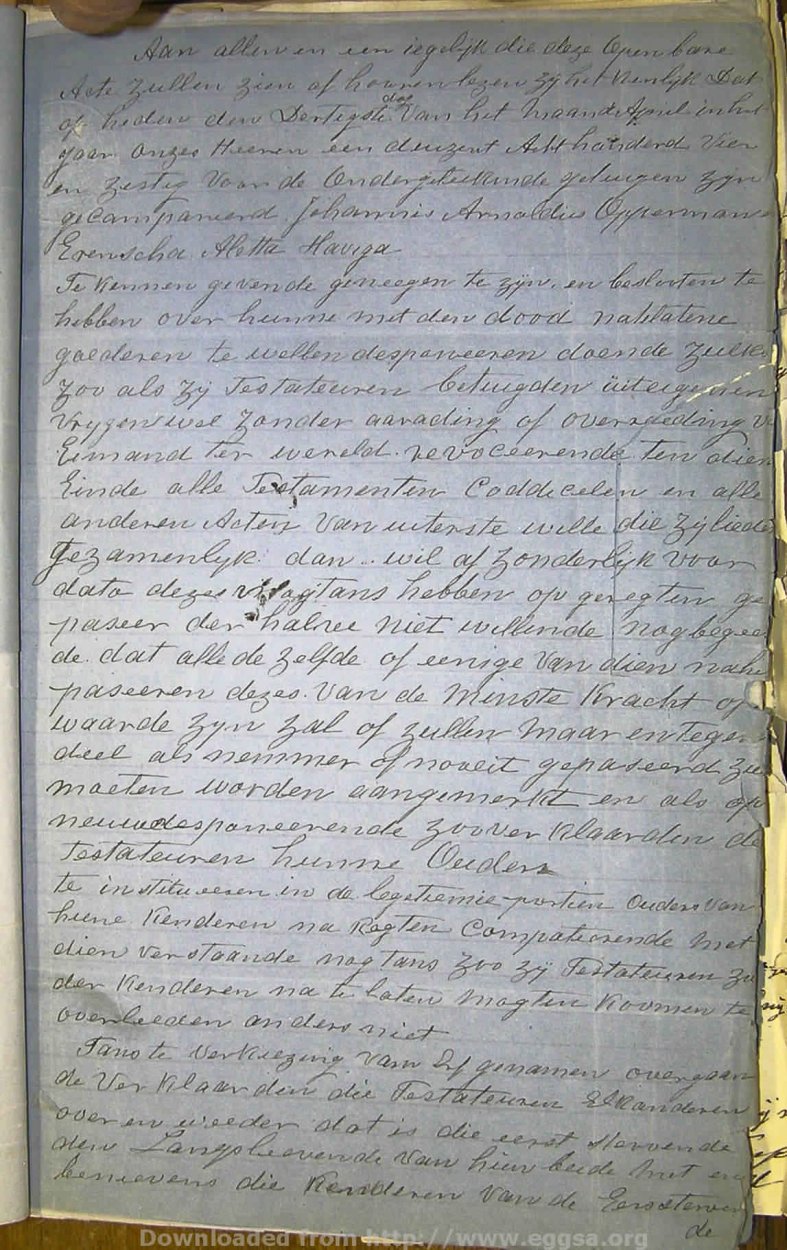 Aan allen en een iegelijk die deze Openbare
Acte zullen zien of hooren lezen zy het kenlyk Dat
op heden den Dertigste dag Van het maand April in het
yaar onzes Heeren een duizent Acht honderd Vier
en zestig Voor de Ondergeteekende getuigen zyn
gecompareerd Johannis Arnoldus Opperman
Erenscha Aletta Haviga
Te kennen gevende geneegen te zyn en besloten te
hebben over hunne met den dood natelatene
goederen te wellen desponeeren doende zulks
zoo als zy Testateuren betuigden uit eigenen
Vrygen wel zonder aarading of overreeding V
Eimand ter wereld revoceerende ten dien
Einde alle Testamenten Coddecelen en alle
anderen Acten Van uiterste wille die zy liede
gezamenlyk dan wel of zonderlyk voor
dato dezes nogtans hebben op geregten ge
paseer der halve niet willende nog begee
de dat alle de zelfde of eenige Van dien nahe
paseeren dezes Van de minste kracht of
waarde zyn zal of zullen maar en tegen
deel als nemmer of nooeit gepaseerd zu
moeten worden aangemerkt en als op
neuw desponeerende zoo ver klaarden de
Testateuren hunne Ouders
te institueeren in de legetiemie portien Ouders Van
hune kenderen na Regten Competeerende met
dien verstaande nog tans zoo zy Testateuren zo
der kenderen na te laten mogten koomen te
overleeden anders niet
Tans te verkiezing Van Erf genamen overgaan
de Ver klaarden die Testateuren Elkanderen
over en weeder dat is die eerst stervende
den Langsleevende van hun beide met en
benievens die kenderen Van de Eerstester
de
Downloaded from http://www.eggsa.org